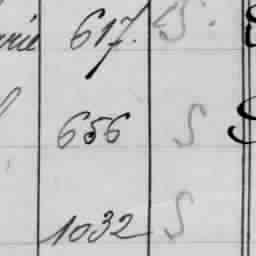 617. S.
656 S
1032 S